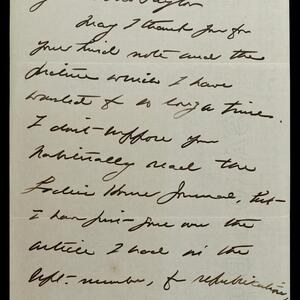 May I thank you for
your kind note and the
picture which I have
wanted of so long a time.
I don't suppose you
habitually read the
Ladies Home Journal, but
I have just gone over the
article I had in the
Sept. number, for republication